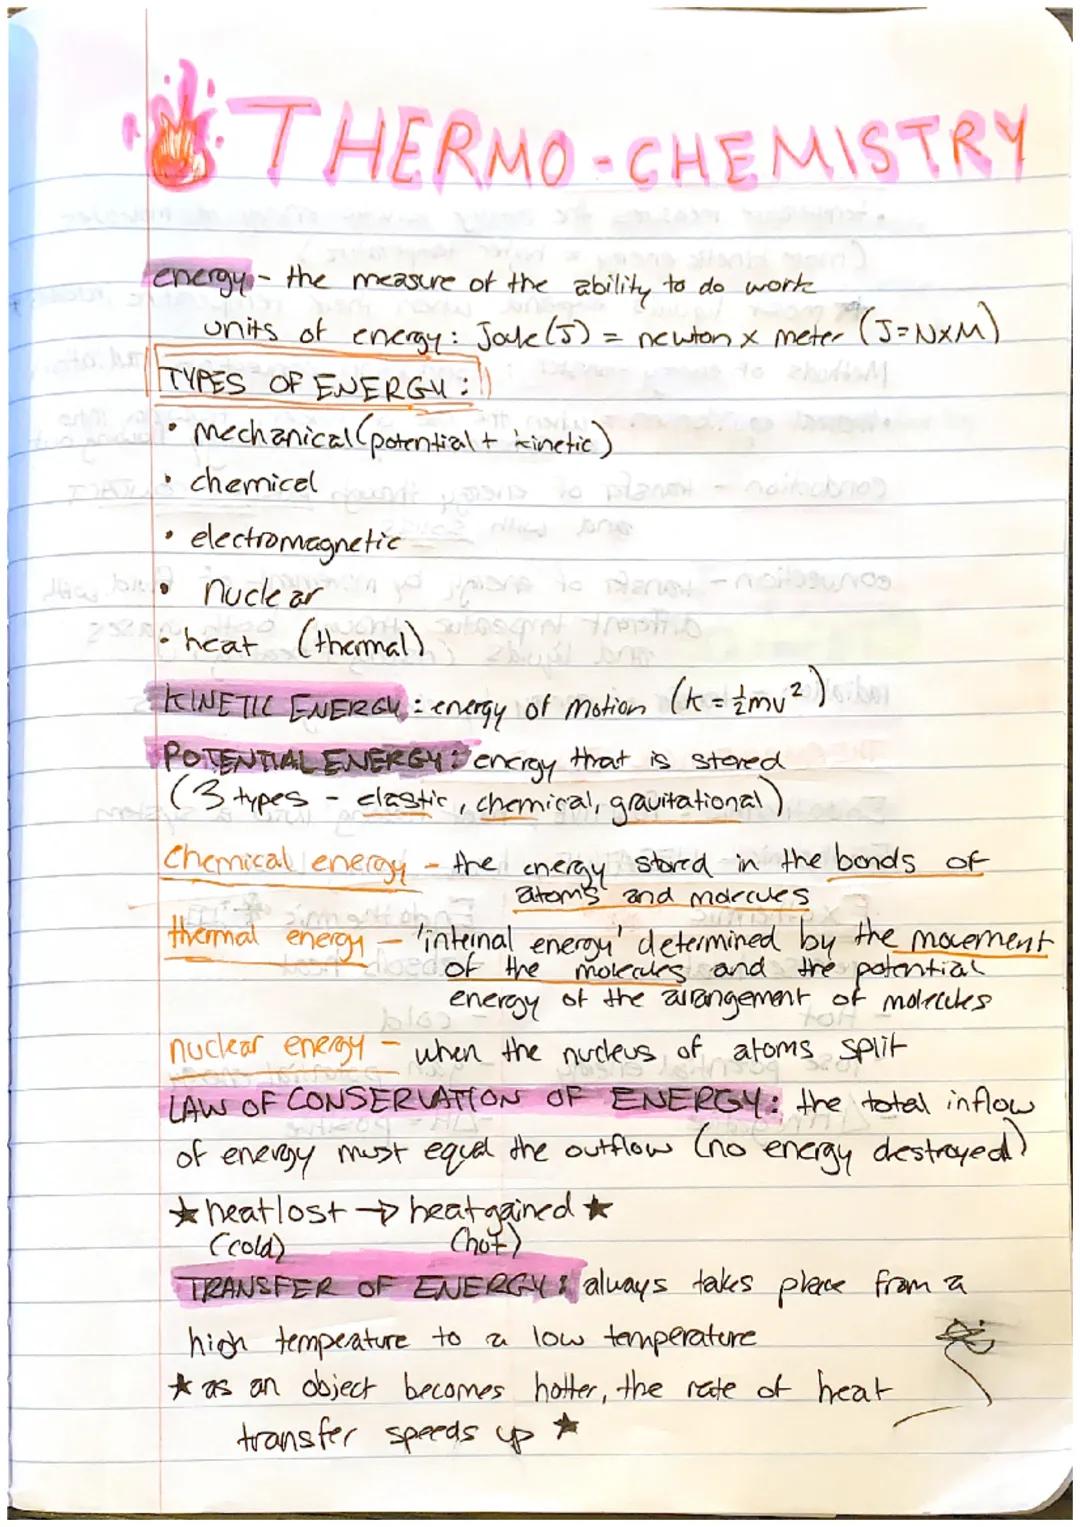 THERMO-CHEMISTRY
energy - the measure of the ability to do work
units of energy: Joule (J) = newton x meter (J=NxM)
TYPES OF ENERGY:
• mechanical (potential + kinetic)
• chemical
• electromagnetic
• nuclear
• heat (thermal)
KINETIC ENERGY: energy of motion (k = ½mv²)
POTENTIAL ENERGY: energy that is stored
(3 types - elastic, chemical, gravitational)
Chemical energy - the energy stored in the bonds of
atoms and molecules
thermal energy - 'internal energy' determined by the movement
of the molecules and the potential
energy of the arrangement of molecules
nuclear energy - when the nucleus of atoms split
LAW OF CONSERVATION OF ENERGY: the total inflow
of energy must equal the outflow (no energy destroyed)
★ heat lost → heat gained ★
(cold) (hot)
TRANSFER OF ENERGY: always takes place from a
high temperature to a low temperature
★ as an object becomes hotter, the rate of heat
transfer speeds up ★